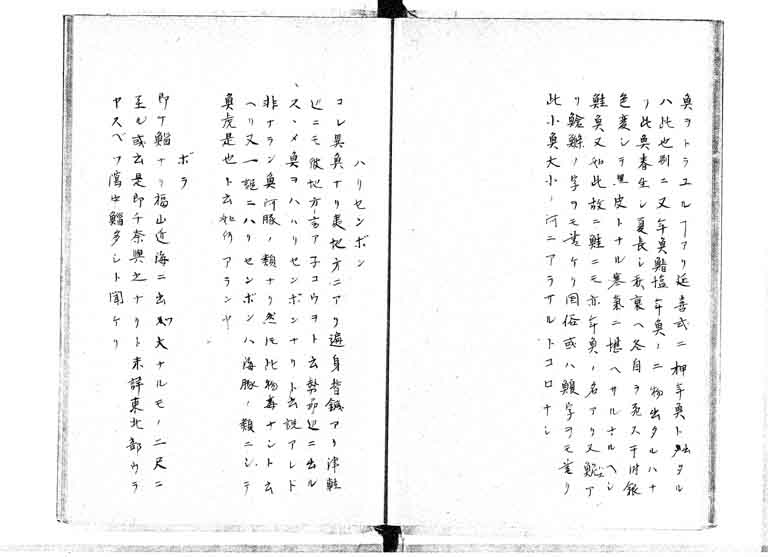 魚ヲトラユルヿアリ延喜式ニ押年魚ト出タル
ハ此也別ニ又年魚鮨塩年魚ノ二物出タルハナ
リ此魚春生レ夏長シ秋衰ヘ冬自ラ死ス于時銀
色変シテ黒皮トナル寒氣ニ堪ヘサルナルヘシ
鮭魚又如此故ニ鮭ニモ亦年魚ノ名アリ又
リ字ヲモ書ケリ国俗或ハ字ヲモ塗リ
此小魚大小ノ河ニアラサルトコロナシ
ハリセンボン
コレ異魚ナリ夷地方ニアリ遍身皆鍼アリ津軽
辺ニモ彼地方言ア子コウヲト云勢品辺ニ出ル
スヽメ魚ヲハハリセンボンナリト云説アレド
非ナラン魚河豚ノ類ナリ然㆑此物毒ナシト云
ヘリ又一説ニハリセンボンハ海豚ノ類ニシテ
魚虎是也ト云如何アランヤ
ボラ
即チ鯔ナリ福山近海ニ出大ナルモノ二尺ニ
至ル或云是即チ奈興之ナリト未詳東北部ウラ
ヤスベツ湾中鯔多シト聞ケリ